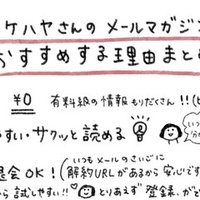 ケハヤさんの メールマガジン
おすすめする理由まとめ
¥0 有料級の情報もりだくさん!!
やすい・サクッと読める
会OK! (いつもメールのさいごに
解約URLがあるから安心です
から試しやすい!! とりあえず 登録、が